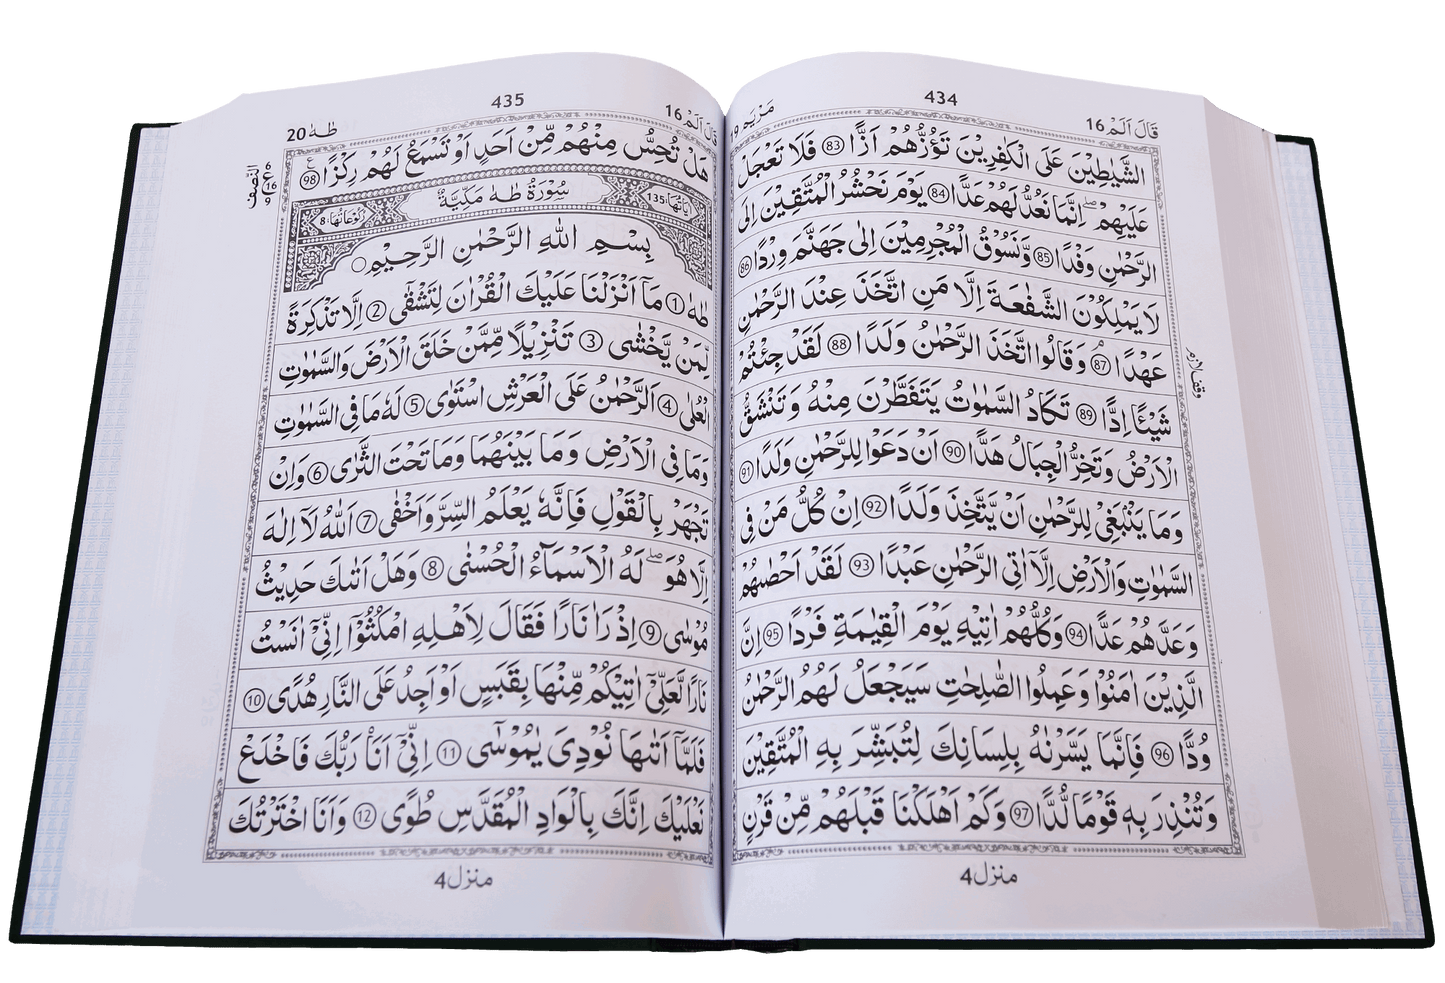 قَالَ اَلَمْ 16
434
مَرْيَم 19
الشَّيٰطِيْنَ عَلَى الْكٰفِرِيْنَ تَؤُزُّهُمْ اَزًّا 83 فَلَا تَعْجَلْ
عَلَيْهِمْ ۖ اِنَّمَا نَعُدُّ لَهُمْ عَدًّا 84 يَوْمَ نَحْشُرُ الْمُتَّقِيْنَ اِلَى
الرَّحْمٰنِ وَفْدًا 85 وَّنَسُوْقُ الْمُجْرِمِيْنَ اِلٰى جَهَنَّمَ وِرْدًا 86
لَا يَمْلِكُوْنَ الشَّفٰعَةَ اِلَّا مَنِ اتَّخَذَ عِنْدَ الرَّحْمٰنِ
عَهْدًا 87 ۘ وَقَالُوا اتَّخَذَ الرَّحْمٰنُ وَلَدًا 88 لَقَدْ جِئْتُمْ
شَيْئًا اِدًّا 89 تَكَادُ السَّمٰوٰتُ يَتَفَطَّرْنَ مِنْهُ وَتَنْشَقُّ
الْاَرْضُ وَتَخِرُّ الْجِبَالُ هَدًّا 90 اَنْ دَعَوْا لِلرَّحْمٰنِ وَلَدًا 91
وَمَا يَنْۢبَغِيْ لِلرَّحْمٰنِ اَنْ يَّتَّخِذَ وَلَدًا 92 اِنْ كُلُّ مَنْ فِي
السَّمٰوٰتِ وَالْاَرْضِ اِلَّاۤ اٰتِي الرَّحْمٰنِ عَبْدًا 93 لَقَدْ اَحْصٰىهُمْ
وَعَدَّهُمْ عَدًّا 94 وَكُلُّهُمْ اٰتِيْهِ يَوْمَ الْقِيٰمَةِ فَرْدًا 95 اِنَّ
الَّذِيْنَ اٰمَنُوْا وَعَمِلُوا الصّٰلِحٰتِ سَيَجْعَلُ لَهُمُ الرَّحْمٰنُ
وُدًّا 96 فَاِنَّمَا يَسَّرْنٰهُ بِلِسَانِكَ لِتُبَشِّرَ بِهِ الْمُتَّقِيْنَ
وَتُنْذِرَ بِهٖ قَوْمًا لُّدًّا 97 وَكَمْ اَهْلَكْنَا قَبْلَهُمْ مِّنْ قَرْنٍ
منزل 4
قَالَ اَلَمْ 16
435
طٰهٰ 20
هَلْ تُحِسُّ مِنْهُمْ مِّنْ اَحَدٍ اَوْ تَسْمَعُ لَهُمْ رِكْزًا 98
ع
النصف
اٰيَاتُهَا 135
سُوْرَةُ طٰهٰ مَكِّيَّةٌ
رُكُوْعَاتُهَا 8
بِسْمِ اللّٰهِ الرَّحْمٰنِ الرَّحِيْمِ
طٰهٰ 1 مَاۤ اَنْزَلْنَا عَلَيْكَ الْقُرْاٰنَ لِتَشْقٰۤى 2 اِلَّا تَذْكِرَةً
لِّمَنْ يَّخْشٰى 3 تَنْزِيْلًا مِّمَّنْ خَلَقَ الْاَرْضَ وَالسَّمٰوٰتِ
الْعُلٰى 4 اَلرَّحْمٰنُ عَلَى الْعَرْشِ اسْتَوٰى 5 لَهٗ مَا فِي السَّمٰوٰتِ
وَمَا فِي الْاَرْضِ وَمَا بَيْنَهُمَا وَمَا تَحْتَ الثَّرٰى 6 وَاِنْ
تَجْهَرْ بِالْقَوْلِ فَاِنَّهٗ يَعْلَمُ السِّرَّ وَاَخْفٰى 7 اَللّٰهُ لَاۤ اِلٰهَ
اِلَّا هُوَ ۖ لَهُ الْاَسْمَآءُ الْحُسْنٰى 8 وَهَلْ اَتٰىكَ حَدِيْثُ
مُوْسٰى 9 اِذْ رَاٰ نَارًا فَقَالَ لِاَهْلِهِ امْكُثُوْۤا اِنِّيْۤ اٰنَسْتُ
نَارًا لَّعَلِّيْۤ اٰتِيْكُمْ مِّنْهَا بِقَبَسٍ اَوْ اَجِدُ عَلَى النَّارِ هُدًى 10
فَلَمَّاۤ اَتٰىهَا نُوْدِيَ يٰمُوْسٰى 11 اِنِّيْۤ اَنَا رَبُّكَ فَاخْلَعْ
نَعْلَيْكَ اِنَّكَ بِالْوَادِ الْمُقَدَّسِ طُوًى 12 وَاَنَا اخْتَرْتُكَ
منزل 4